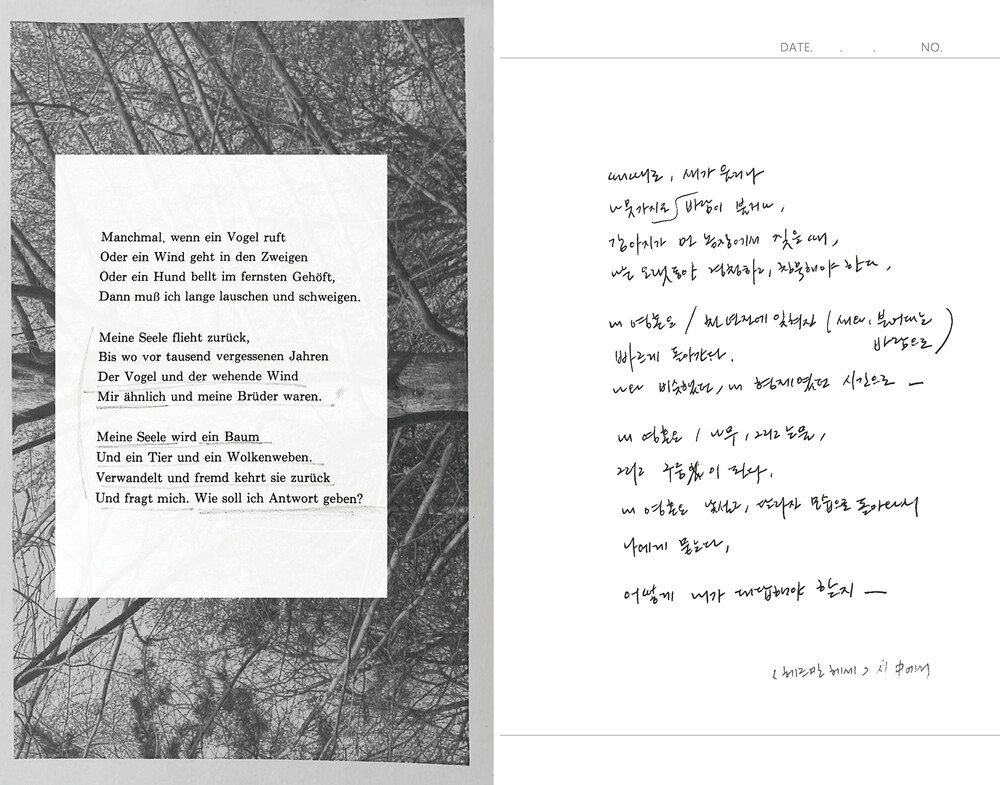 Manchmal, wenn ein Vogel ruft
Oder ein Wind geht in den Zweigen
Oder ein Hund bellt im fernsten Gehöft,
Dann muß ich lange lauschen und schweigen.
Meine Seele flieht zurück,
Bis wo vor tausend vergessenen Jahren
Der Vogel und der wehende Wind
Mir ähnlich und meine Brüder waren.
Meine Seele wird ein Baum
Und ein Tier und ein Wolkenweben.
Verwandelt und fremd kehrt sie zurück
Und fragt mich. Wie soll ich Antwort geben?
DATE. . . NO.
때때로, 새가 울거나
나뭇가지로 바람이 불거나,
강아지가 먼 농장에서 짖을 때,
나는 오랫동안 경청하고, 침묵해야 한다,
내 영혼은 / 천 년전에 잊혀진 (새와, 불어대는
바람으로)
빠르게 돌아간다.
나와 비슷했던, 내 형제였던 시간으로 —
내 영혼은 / 나무, 그리고 동물,
그리고 구름 이 된다.
내 영혼은 낯설고, 달라진 모습으로 돌아와서
나에게 묻는다,
어떻게 내가 대답해야 할지 —
<헤르만 헤세> 시 中에서